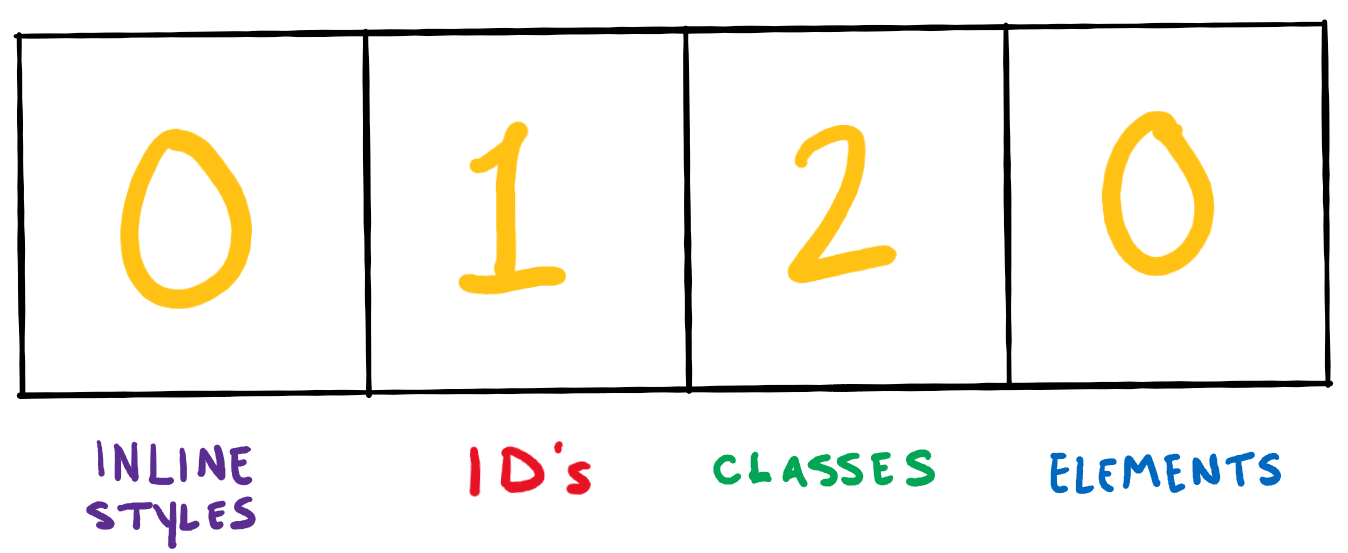 0 1 2 0
INLINE STYLES ID's CLASSES ELEMENTS